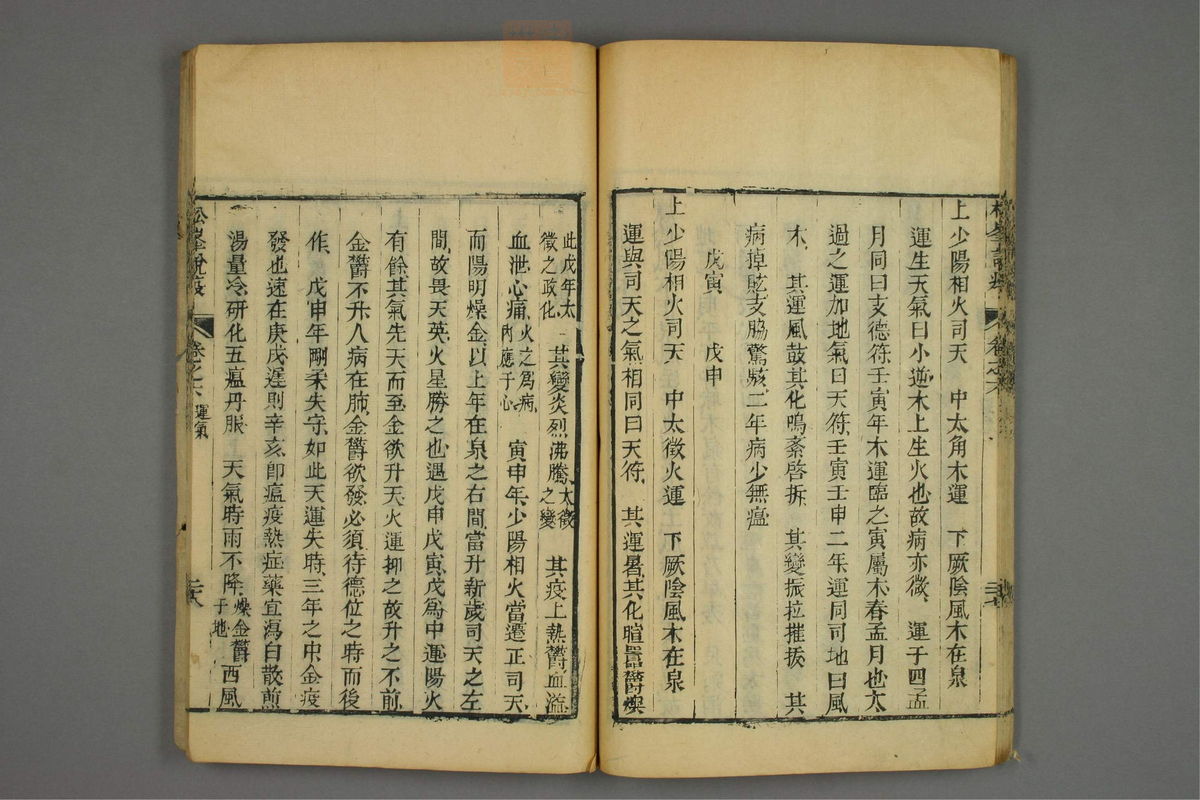 上少陽相火司天　中太角木運　下厥陰風木在泉
運生天氣曰小逆木上生火也故病亦微　運于四孟
月同曰支德符壬寅年木運臨之寅屬木春孟月也太
過之運加地氣曰天符壬寅壬申二年運同司地曰風
木　其運風鼓其化鳴紊啓拆　其變振拉摧拔　其
病掉眩支脇驚駭二年病少無瘟
戊寅　戊申
上少陽相火司天　中太徵火運　下厥陰風木在泉
運與司天之氣相同曰天符　其運暑其化暄嚻鬱燠
此戊年太
徵之政化
其變炎烈沸騰
太徵
之變
其疫上熱鬱血溢
血泄心痛
火之爲病
內應于心
寅申年少陽相火當遷正司天
而陽明燥金以上年在泉之右間當升新歲司天之左
間故畏天英火星勝之也遇戊申戊寅戊爲中運陽火
有餘其氣先天而至金欲升天火運抑之故升之不前
金鬱不升人病在肺金鬱欲發必須待德位之時而後
作　戊申年剛柔失守如此天運失時三年之中金疫
發也速在庚戌遲則辛亥卽瘟疫熱症藥宜瀉白散煎
湯量冷研化五瘟丹服　天氣時雨不降
燥金鬱
于地
西風
松峯說疫
卷之六
運氣
二十八